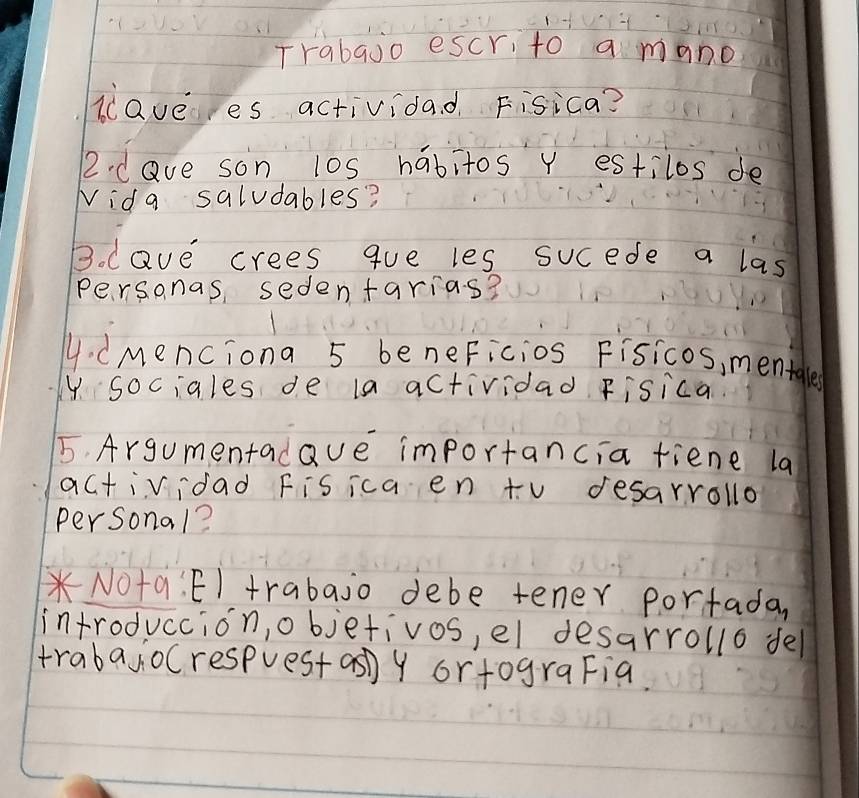 Trabajo escrito a mano
1.¿Qué es actividad Física?
2.¿Que son los hábitos y estilos de
vida saludables?
3.¿Qué crees que les sucede a las
Personas sedentarias?
4.¿Menciona 5 beneficios Físicos, mentales
y sociales de la actividad Física.
5. Argumenta¿Qué importancia tiene la
actividad Física en tu desarrollo
personal?
* Nota: El trabajo debe tener Portada,
introducción, objetivos, el desarrollo del
trabajo(respuestas) y ortografía.